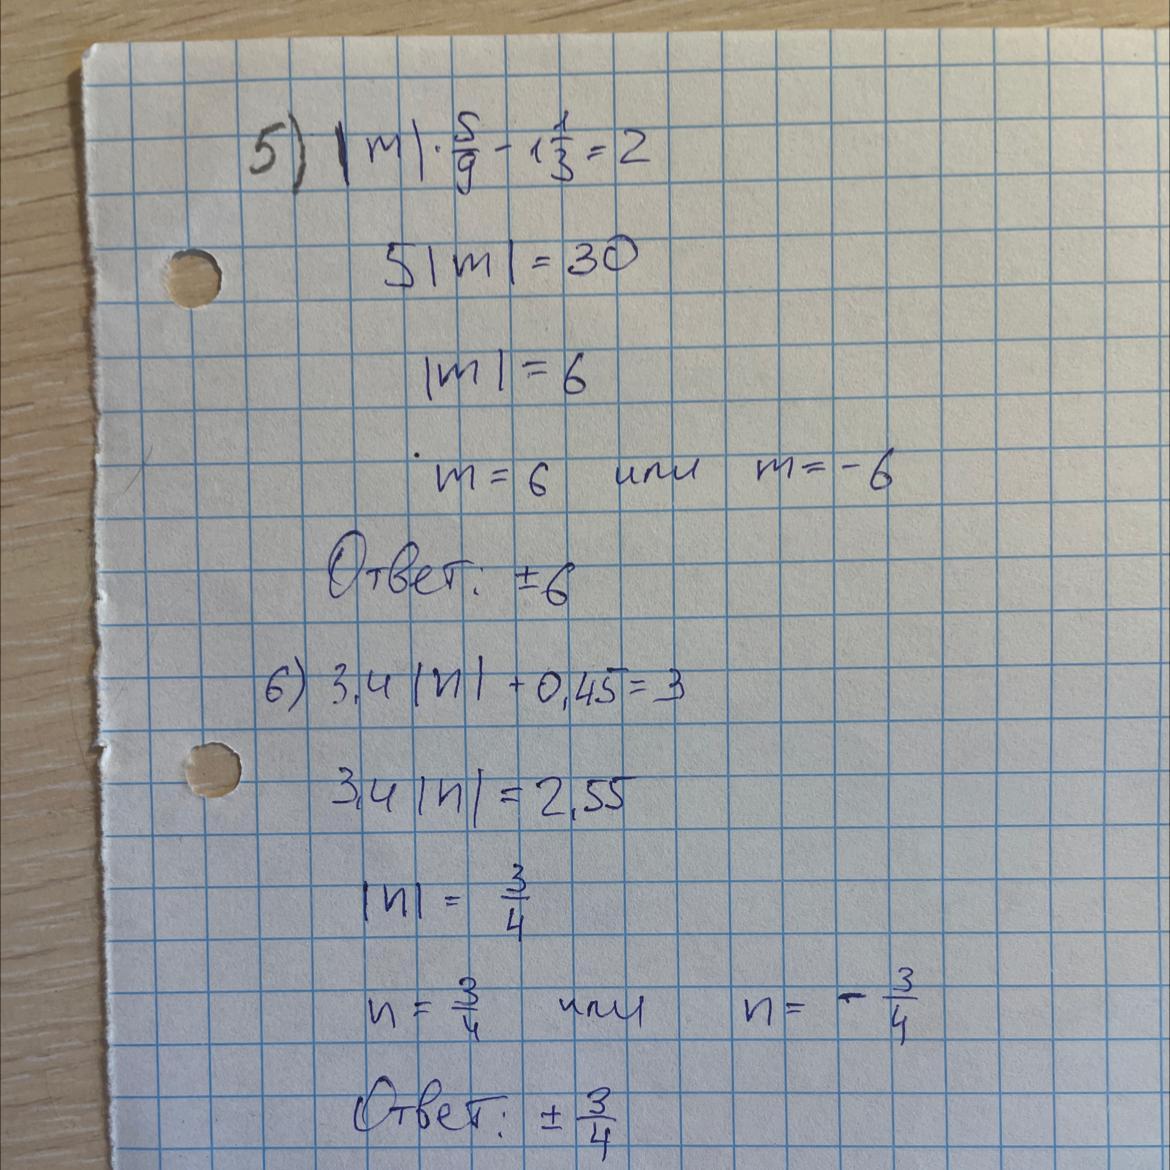 5) |m| · 5/9 - 1 1/3 = 2
5|m| = 30
|m| = 6
m = 6 или m = -6
Ответ: ±6
6) 3,4 |n| + 0,45 = 3
3,4 |n| = 2,55
|n| = 3/4
n = 3/4 или n = - 3/4
Ответ: ± 3/4